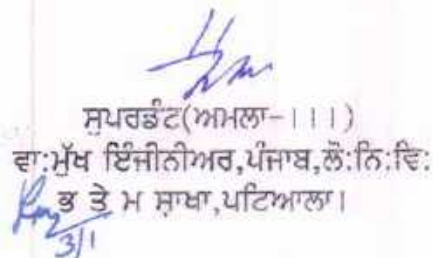 ਸੁਪਰਡੰਟ(ਅਮਲਾ-।।।)
ਵਾ:ਮੁੱਖ ਇੰਜੀਨੀਅਰ,ਪੰਜਾਬ,ਲੋ:ਨਿ:ਵਿ:
ਭ ਤੇ ਮ ਸ਼ਾਖਾ,ਪਟਿਆਲਾ।
3/1